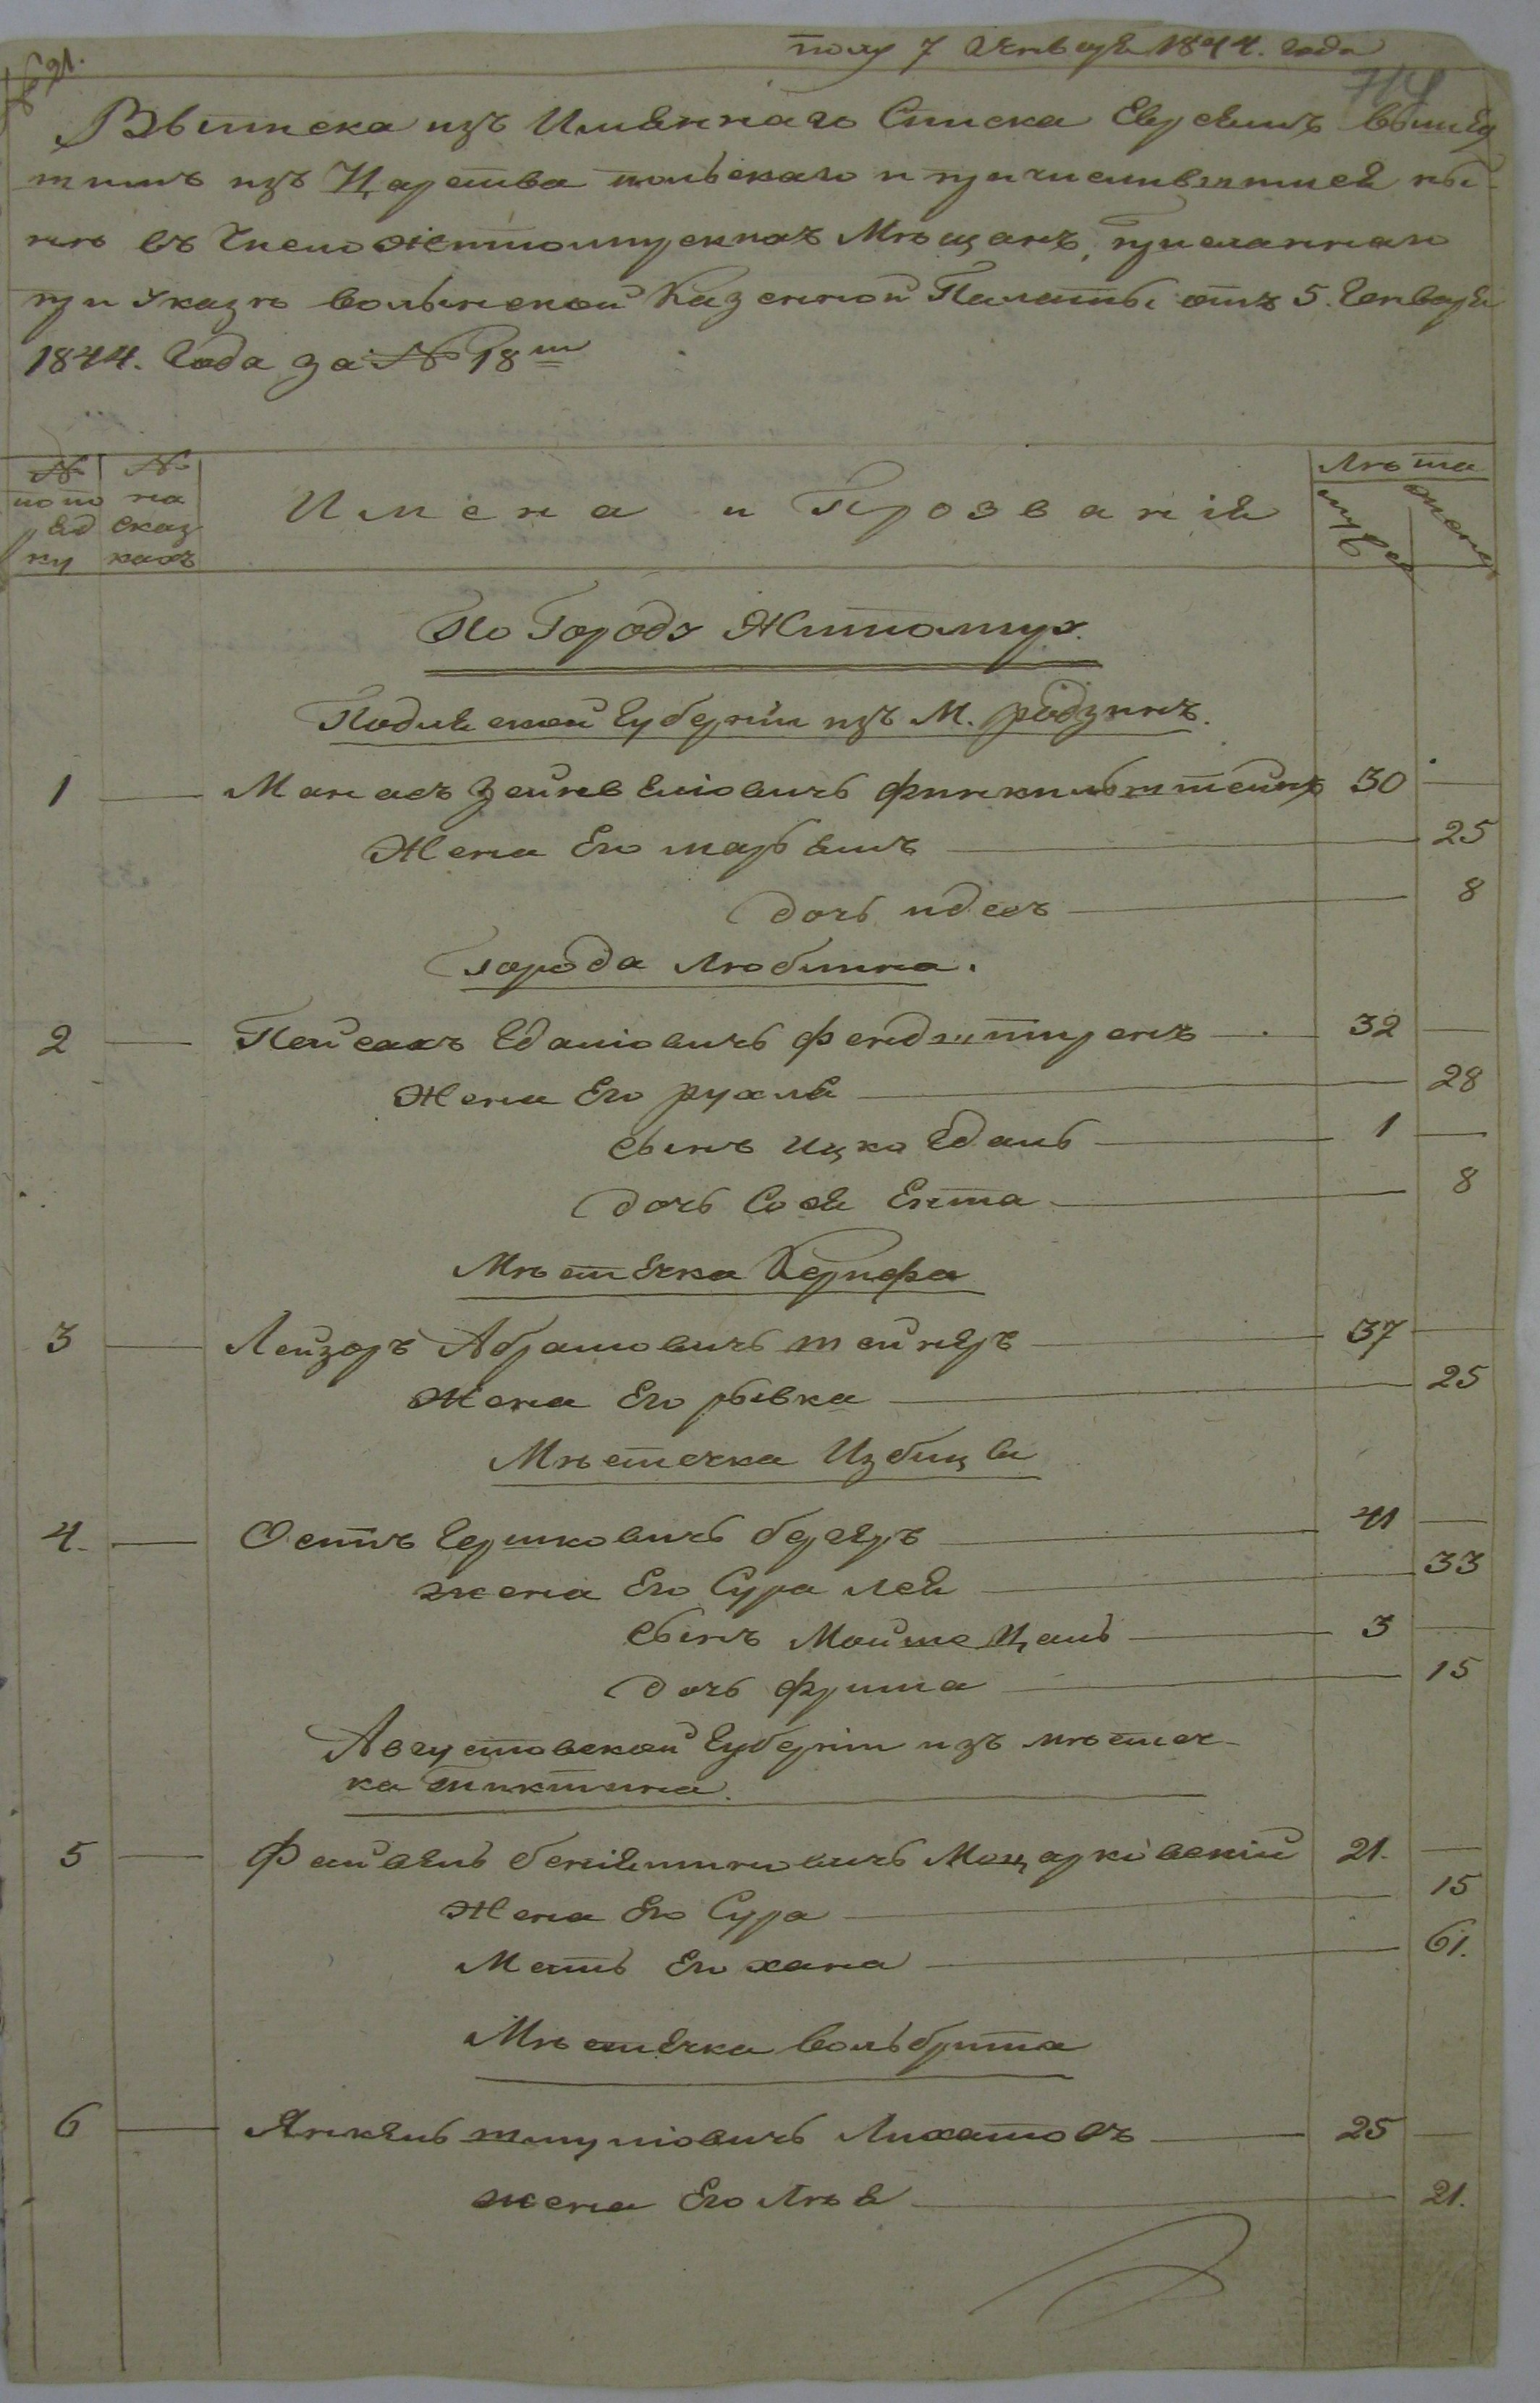 полу 7 Генваря 1844. года
Выписка изъ Имяннаго Списка Евреямъ вышед
шимъ изъ Царства польскаго и причислившимся ны-
не въ Число Житомирскихъ Мѣщанъ, присланнаго
при Указѣ волынской Казенной Палаты отъ 5. Генваря
1844. Года за № 18ш
№ по поряд ку
№ на сказ кахъ
Имена и Прозванія
Лѣта
муж
женс
По Городу Житомиру.
Подляской Губерніи изъ М. Родзинъ.
1 Манасъ Зейнвеліовичъ Финкильштейнъ 30
Жена Его Марьямъ 25
дочь идесъ 8
Города Люблина.
2 Пейсахъ Едаліовичъ Фендштиренъ 32
Жена Его рухля 28
сынъ Ицко Едаль 1
дочь Сося Ента 8
Мѣстечка
3 Лейзоръ Абрамовичъ Шейнеръ 37
Жена Его рывка 25
Мѣстечка Избицы
4. Осипъ Гершковичъ 41
жена Его Сура Лея 33
сынъ Мойше Цаль 3
дочь Фрима 15
Августовской Губерніи изъ мѣстеч-
ка тиктина.
5 Файвель беніяминовичъ 21.
Жена Его Сура 15
Мать Его хана 61.
Мѣстечка вольбрита
6 Янкель шмуліовичъ Лихатовъ 25
жена Его Лѣя 21.